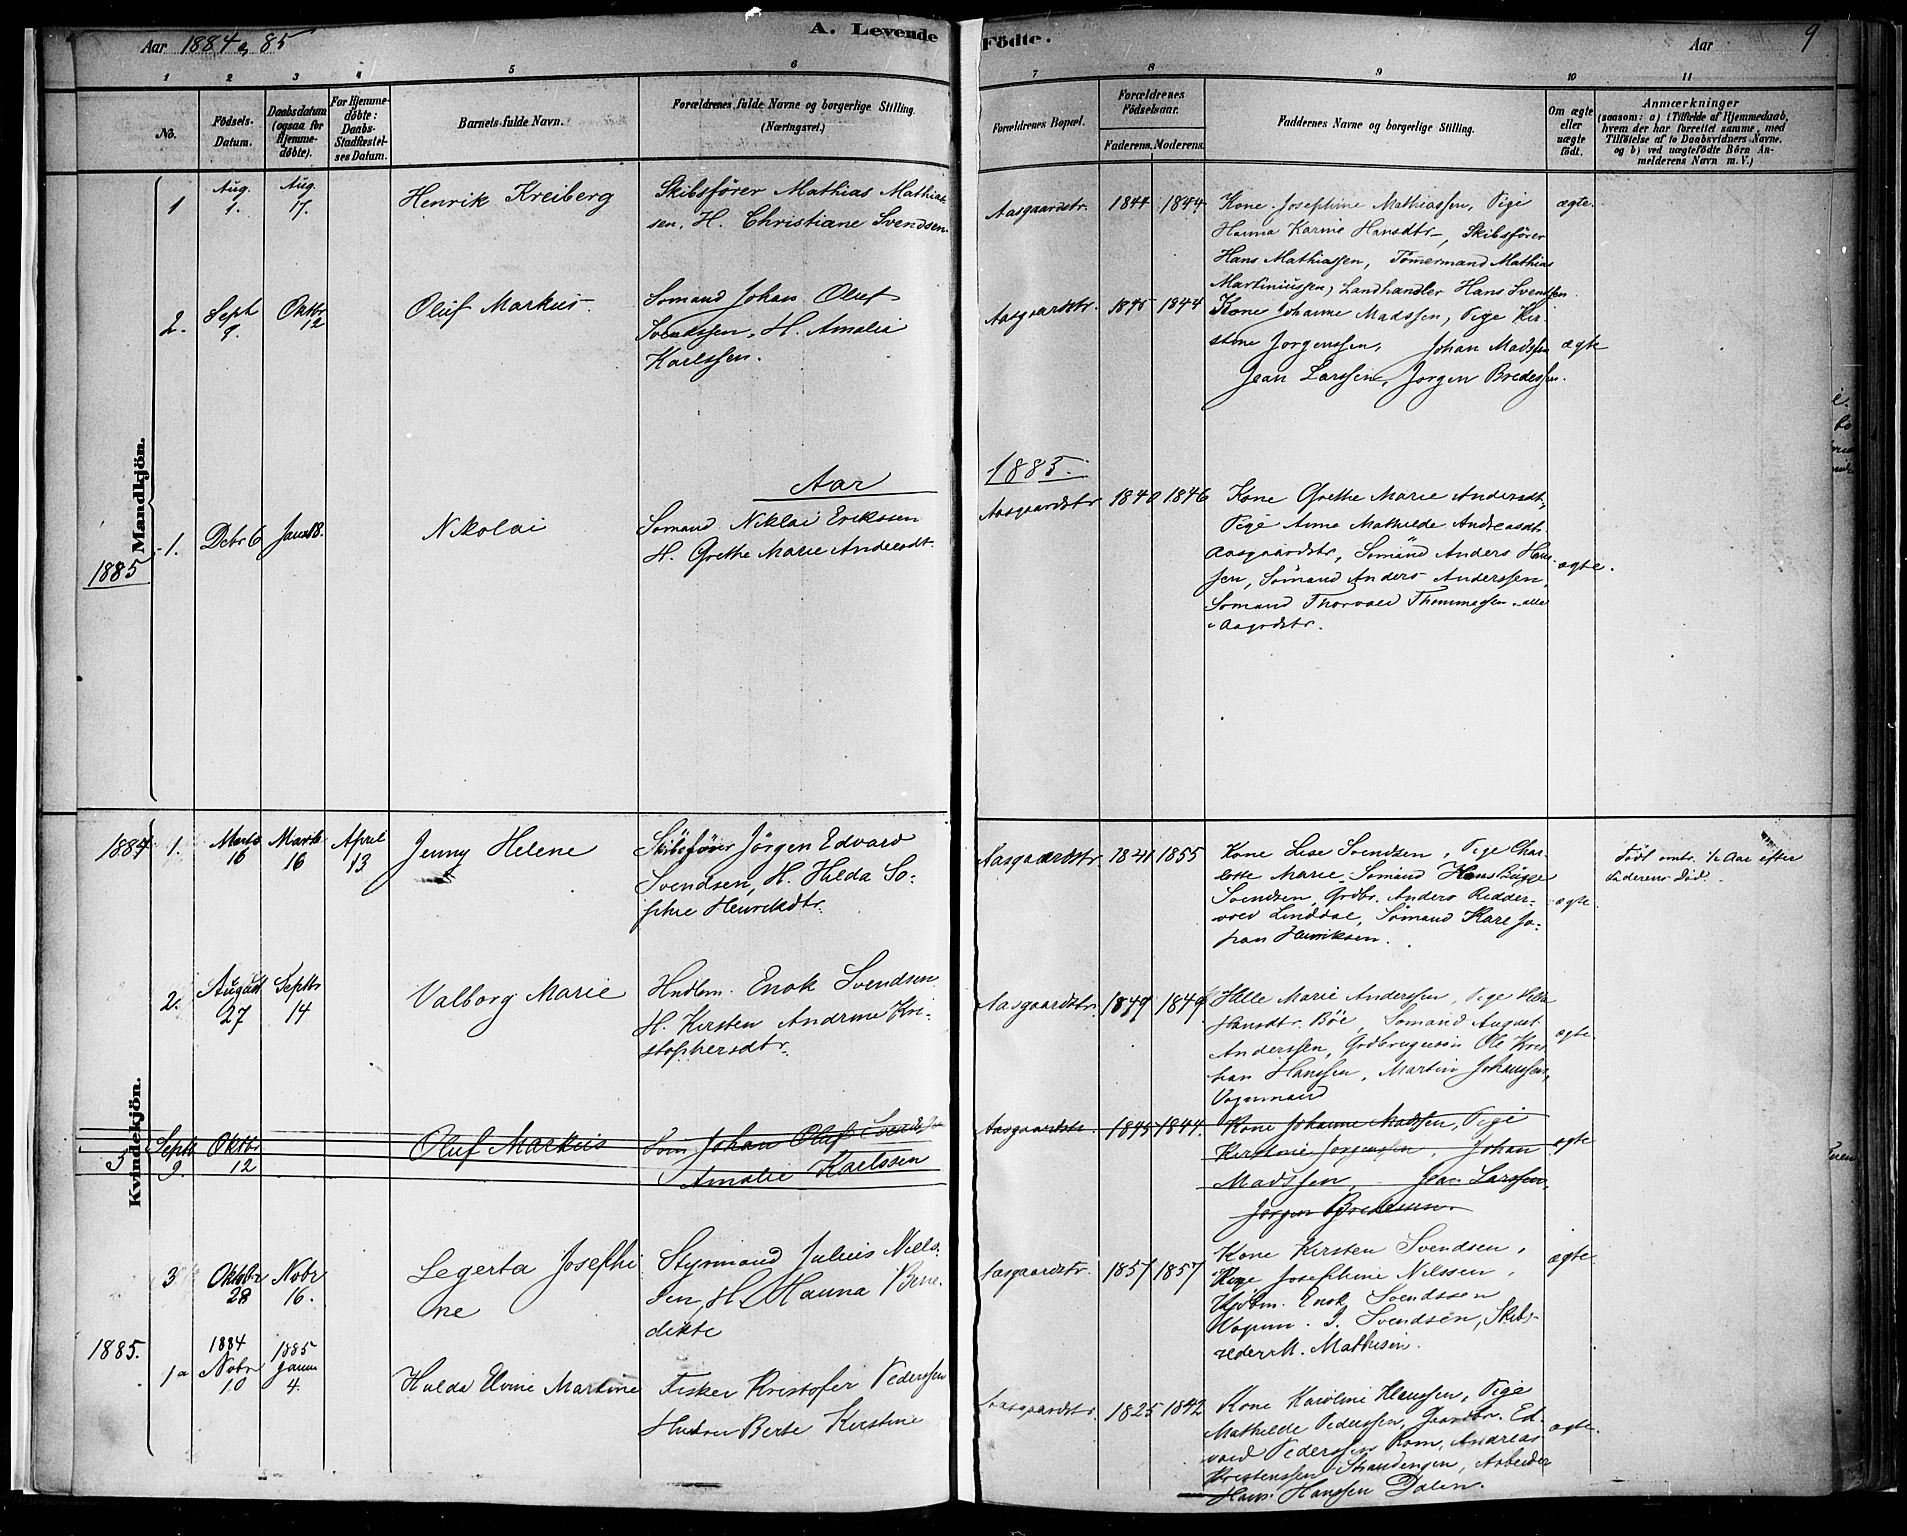 Aar 1884 og 85
A. Levende
Födte.
Aar
9
1 2 3 4 5 6 7 8 9 10 11
No.
Födsels-
Datum.
Daabsdatum
(ogsaa for
Hjemme-
döbte).
For Hjemme-
döbte:
Daabs-
Stadfæstel-
ses Datum.
Barnets fulde Navn.
Forældrenes fulde Navne og borgerlige Stilling.
(Næringsvei.)
Forældrenes Bopæl.
Forældrenes
Födselsaar.
Faderens. Moderens.
Faddernes Navne og borgerlige Stilling.
Om ægte
eller
uægte
födt.
Anmærkninger
(saasom: a) i Tilfælde af Hjemmedaab,
hvem der har forrettet samme, med
Tilföielse af to Daabsvidners Navne,
og b) ved uægtefödte Börn An-
melderens Navn m. V.)
Mandkjön.
1
Aug.
1.
Aug.
17.
Henrik Kreiberg
Skibsfører Mathias Mathias
sen, H. Christiane Svendsen.
Aasgaardstr.
1844 1844
Kone Josephine Mathiassen, Pige
Hanna Karine Hansdtr, Skibsfører
Hans Mathiassen, Tømermand Mathias
Martiniussen, Landhandler Hans Svendsen.
ægte.
2.
Sept
9.
Oktbr
12
Oluf Markus
Sømand Johan Oluf
Svendssen, H. Amalia
Karlssen.
Aasgaardstr.
1845 1844
Kone Johanne Madssen, Pige Kir-
stine Jorgenssen, Johan Madssen
Jean Larssen, Jorgen Bredessen.
ægte
Aar
1885.
1885
1.
Debr 6
Janu 18.
Nikolai
Sømand Niklai Erikssen
H. Grethe Marie Andersdt.
Aasgaardstr
1840 1846
Kone Grethe Marie Andersdt,
Pige Anne Mathilde Andreasdt
Aasgaardstr, Sømand Anders Han-
sen, Sømand Anders Anderssen,
Sømand Thorvald Thommessen, alle
i Aagrdstr.
ægte.
Kvindekjön.
1884
1.
Marts
16
Marts
16
April
13
Jenny Helene
Skibsfører Jörgen Edvard
Svendsen, H. Hilda So-
phie Henrikdtr.
Aasgaardstr.
1841 1855
Kone Lise Svendsen, Pige Char-
lotte Marie, Sømand Hans Bugge
Svendsen, Grdbr. Anders Redder-
vold Linddal, Sømand Karl Jo-
han Henriksen.
ægte
Födt omtr. 1/2 Aar efter
Faderens Död.
2.
August
27
Septbr
14
Valborg Marie
Hndlsm. Enok Svendsen
H. Kirsten Andrine Kri-
stophersdtr.
Aasgaardstr.
1849 1849
Helle Marie Anderssen, Pige
Hansdtr. Böe, Sømand August
Anderssen, Grdbrugersøn Ole Kris
han Hanssen, Martin Johanssen,
Vognmand
ægte
3
Septb
9.
Oktbr
12
Oluf Markus
Søm Johan Oluf Svendsen
Amalie Karlssen
Aasgaardstr.
1845 1844.
Kone Johanne Madssen, Pige
Kirstine Jorgenssen, Johan
Madssen, Jean Larssen,
Jørgen Bredesen.
ægte
3
Oktobr
28
Novbr
16.
Legerta Josefhi
ne
Styrmand Julius Niels-
sen, H. Hanna Bene
dikte
Aasgaardstr.
1857 1857
Kone Kirsten Svendsen,
Pige Josephine Nilssen,
Kjöbm. Enok Svendssen
Vognm. J. Svendsen, Skibs-
reder M. Mathisen.
ægte
1885.
1a
1884
Nobr
10
1885
Janu
4.
Hulda Elvine Martine
Fisker Kristofer Pederssen
Hustru Berte Kirstine
Aasgaardstr.
1825 1842
Kone Karoline Hanssen, Pige
Mathilde Pederssen, Gaardbr. Ed-
vard Pederssen Rom, Andreas
Kristenssen Strandengen, Arbeider
Hans Hanssen Dalen.
ægte